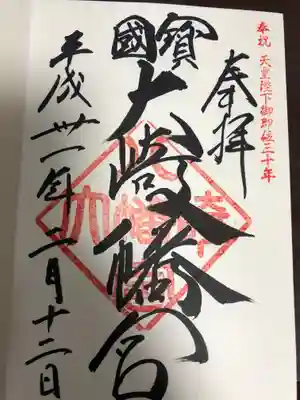 奉祝 天皇陛下御即位三十年
奉拝
國寳
大崎八幡宮
平成卅一年二月十二日